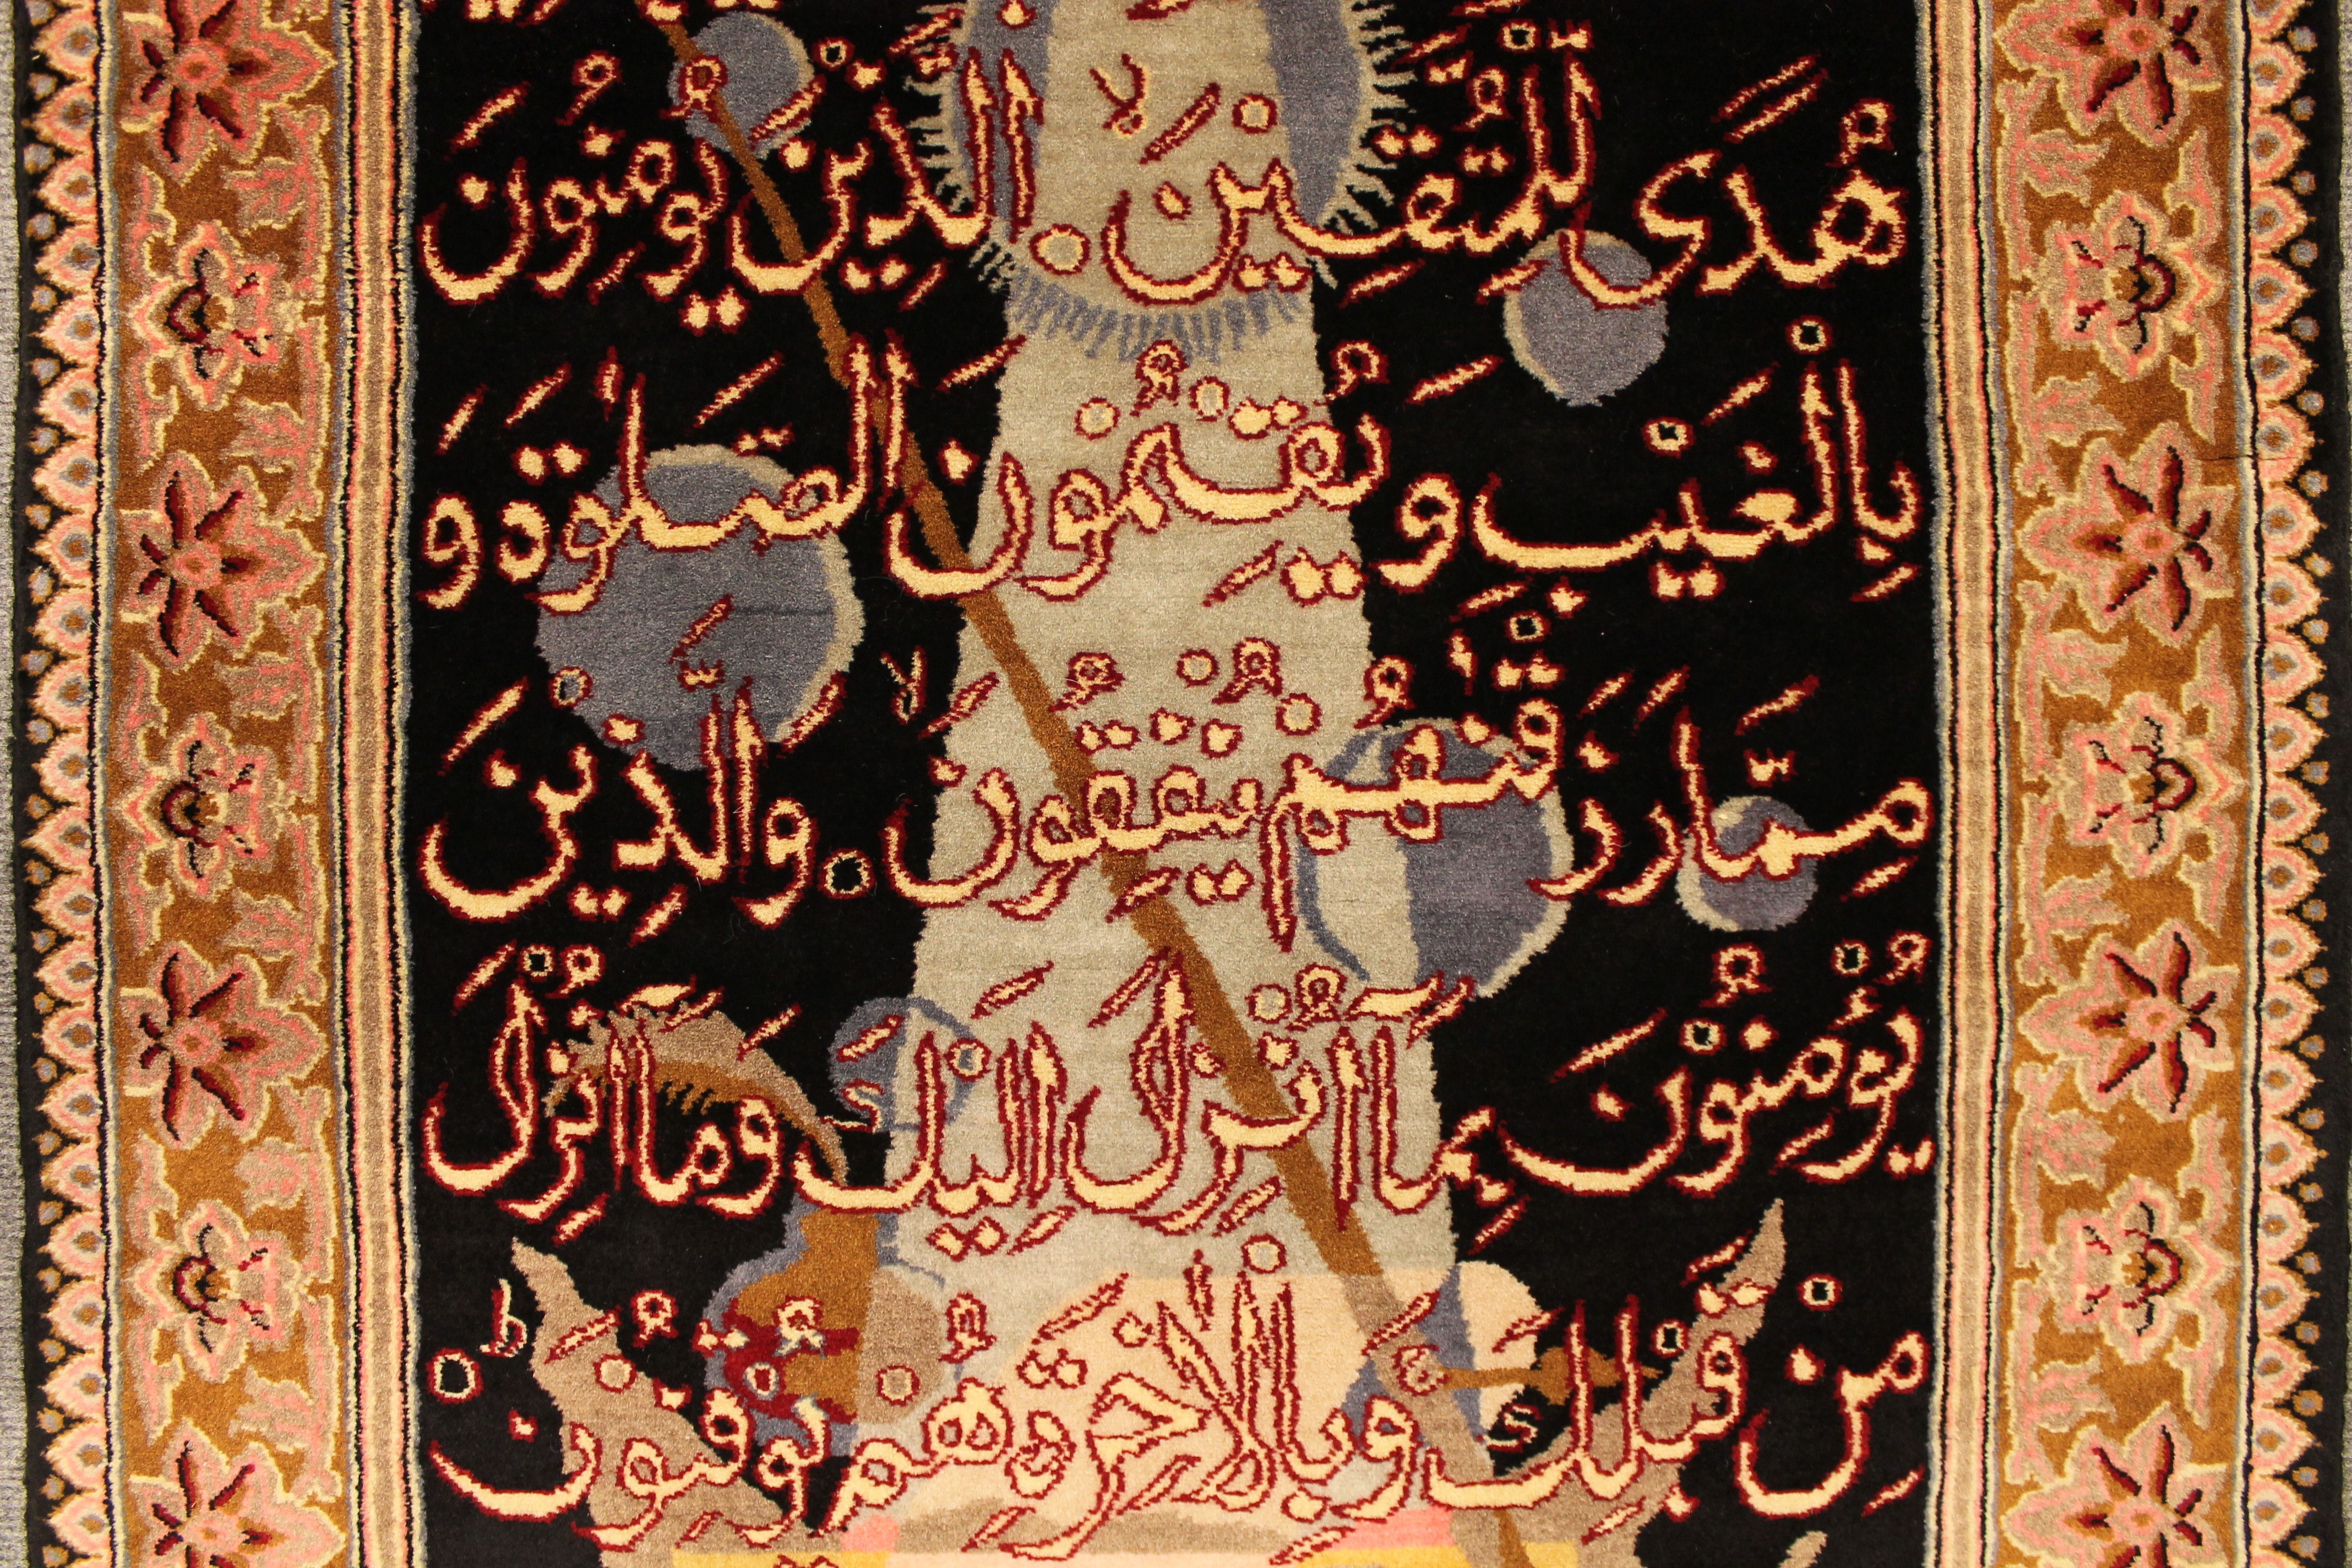 هُدًى لِّلْمُتَّقِيْنَ ۙ الَّذِيْنَ يُوْمِنُوْنَ
بِالْغَيْبِ وَ يُقِيْمُوْنَ الصَّلٰوةَ وَ
مِمَّا رَزَقْنٰهُمْ يُنْفِقُوْنَ ۙ وَالَّذِيْنَ
يُؤْمِنُوْنَ بِمَآ اُنْزِلَ اِلَيْكَ وَمَآ اُنْزِلَ
مِنْ قَبْلِكَ وَبِالْاٰخِرَةِ هُمْ يُوْقِنُوْنَ ؕ